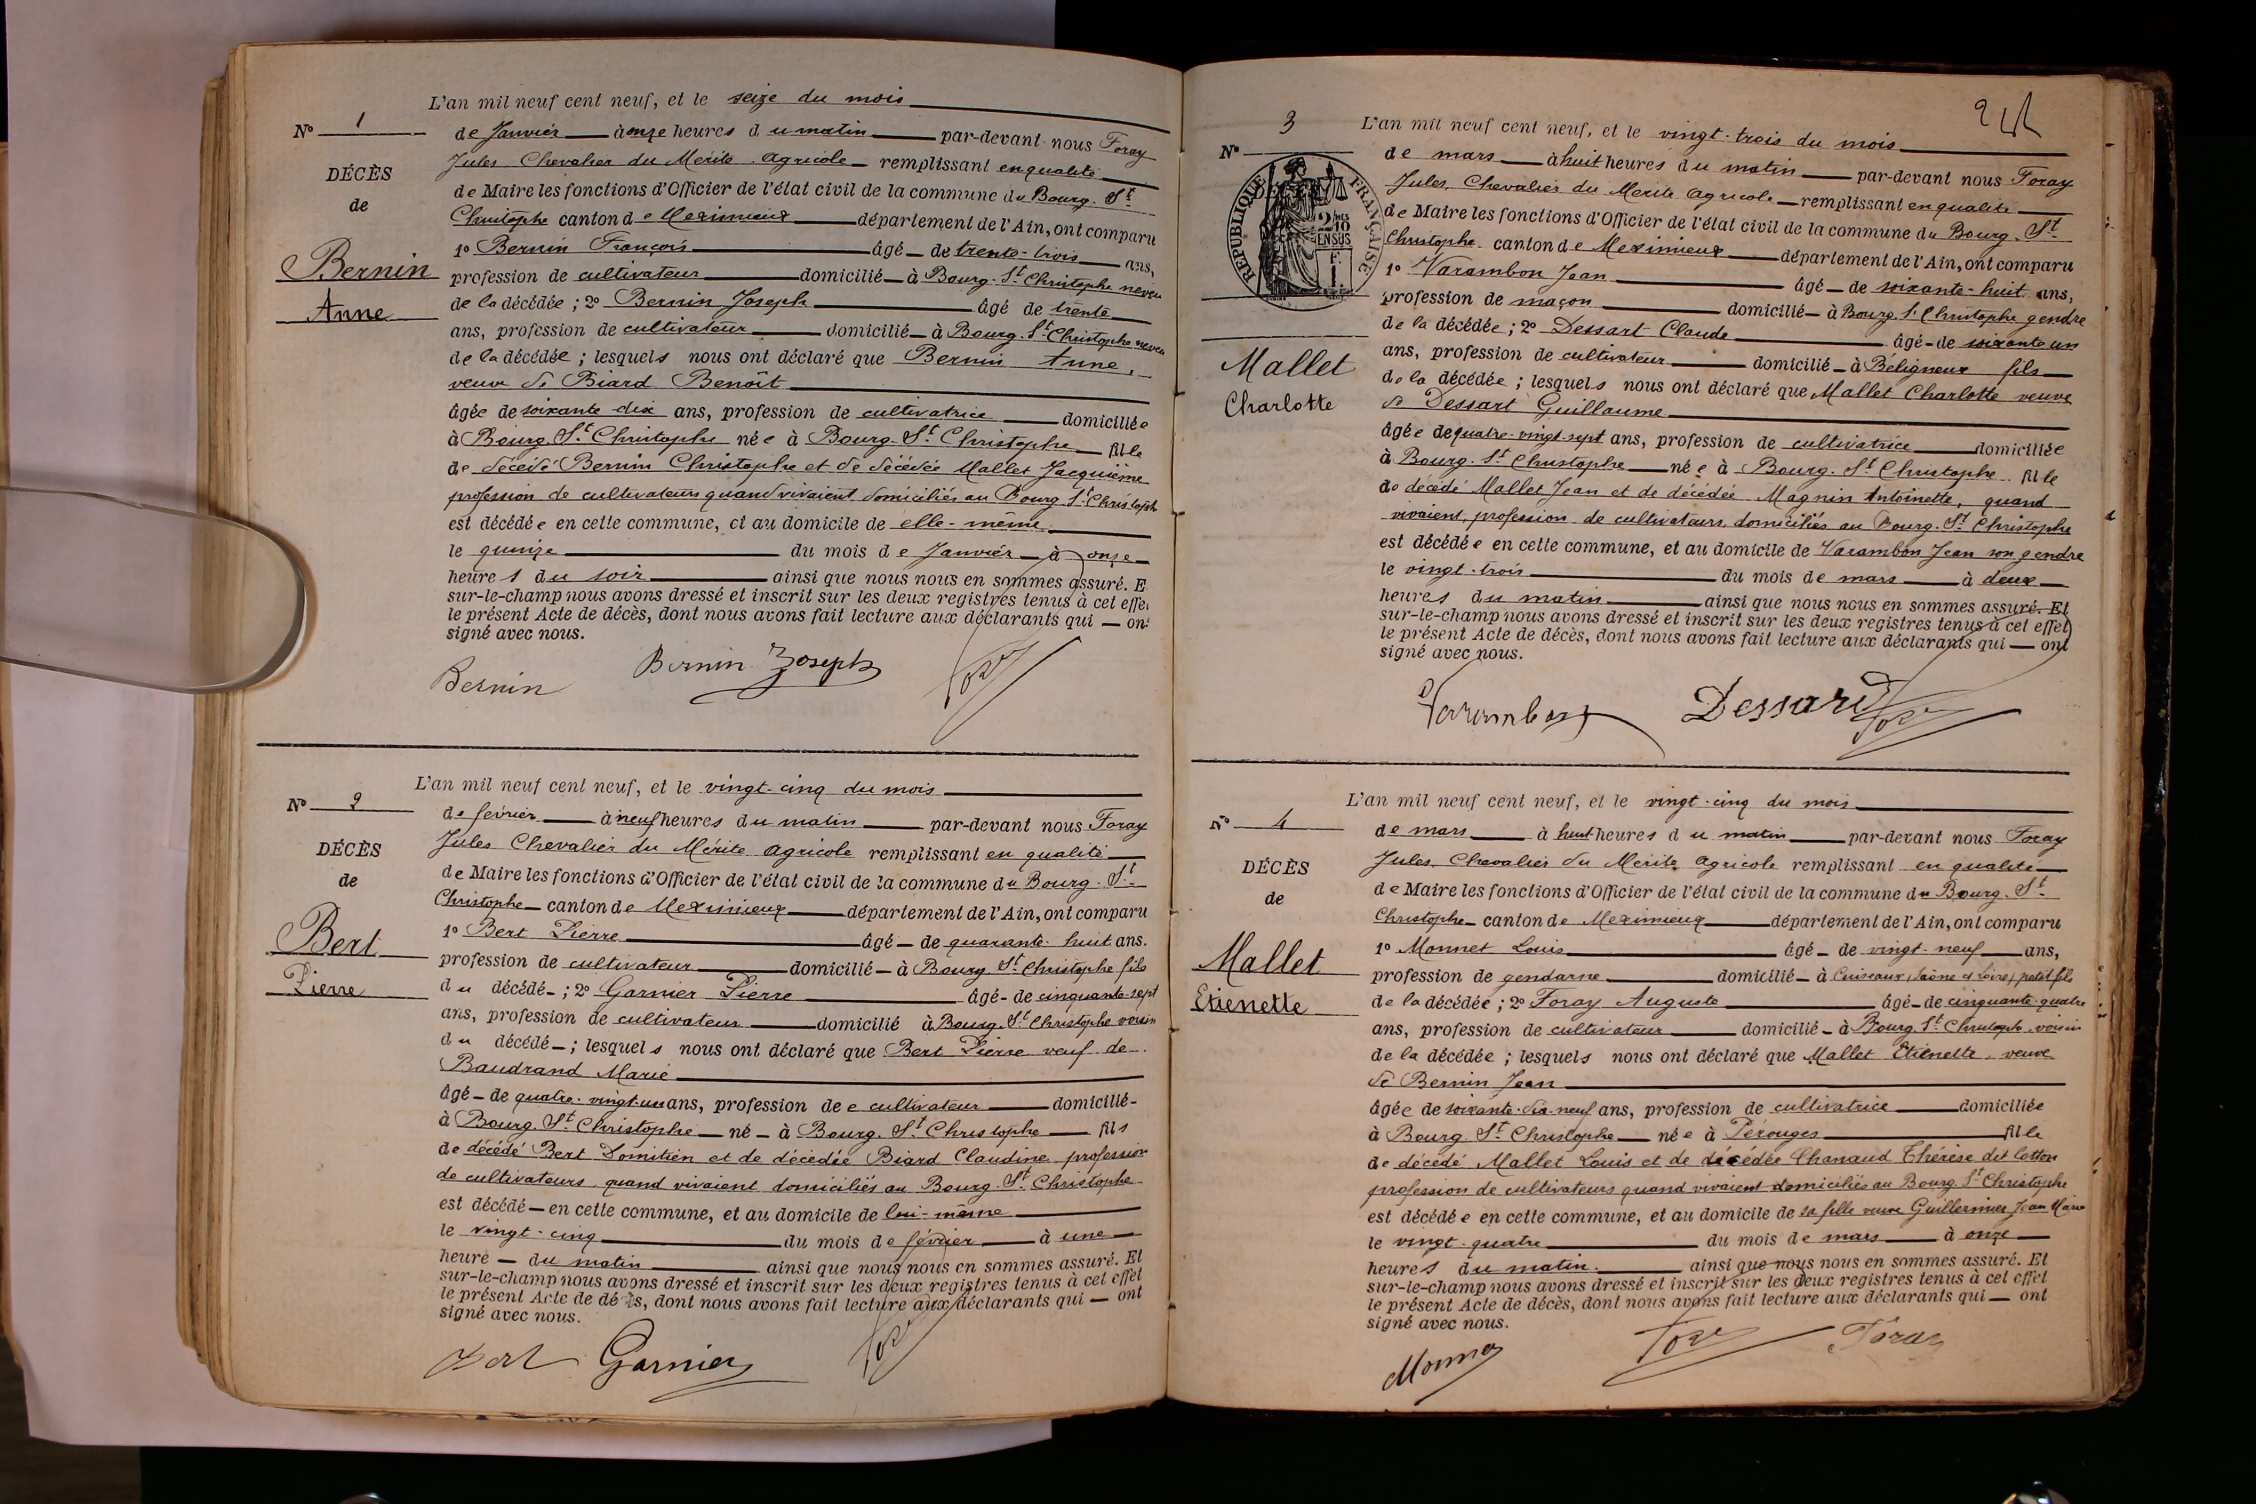 L'an mil neuf cent neuf, et le seize du mois
N° 1
de Janvier à onze heures du matin par-devant nous Foray
Jules Chevalier du Mérite Agricole remplissant en qualité
DÉCÈS
de Maire les fonctions d'Officier de l'état civil de la commune du Bourg. St
de
Christophe canton de Meximieux département de l'Ain, ont comparu
1° Bernin François âgé de trente-trois ans,
Bernin
profession de cultivateur domicilié à Bourg. St Christophe neveu
Anne
de la décédée ; 2° Bernin Joseph âgé de trente
ans, profession de cultivateur domicilié à Bourg. St Christophe neveu
de la décédée ; lesquels nous ont déclaré que Bernin Anne,
veuve de Biard Benoît
âgée de soixante dix ans, profession de cultivatrice domiciliée
à Bourg. St Christophe née à Bourg. St Christophe fille
de décédé Bernin Christophe et de décédée Mallet Jacquième
profession de cultivateurs quand vivaient domiciliés au Bourg. St Christophe
est décédée en cette commune, et au domicile de elle-même
le quinze du mois de Janvier à onze
heures du soir ainsi que nous nous en sommes assuré. E
sur-le-champ nous avons dressé et inscrit sur les deux registres tenus à cet effe
le présent Acte de décès, dont nous avons fait lecture aux déclarants qui ont
signé avec nous.
Bernin Bernin Joseph Foray
L'an mil neuf cent neuf, et le vingt-cinq du mois
N° 2
de février à neuf heures du matin par-devant nous Foray
Jules Chevalier du Mérite Agricole remplissant en qualité
DÉCÈS
de Maire les fonctions d'Officier de l'état civil de la commune du Bourg. St
de
Christophe canton de Meximieux département de l'Ain, ont comparu
1° Bert Pierre âgé de quarante-huit ans.
Bert
profession de cultivateur domicilié à Bourg. St Christophe fils
Pierre
du décédé ; 2° Garnier Pierre âgé de cinquante-sept
ans, profession de cultivateur domicilié à Bourg. St Christophe voisin
du décédé ; lesquels nous ont déclaré que Bert Pierre veuf de
Baudrand Marie
âgé de quatre-vingt-un ans, profession de e cultivateur domicilié
à Bourg. St Christophe né à Bourg. St Christophe fils
de décédé Bert Domitien et de décédée Biard Claudine profession
de cultivateurs quand vivaient domiciliés au Bourg. St Christophe
est décédé en cette commune, et au domicile de lui-même
le vingt-cinq du mois de février à une
heure du matin ainsi que nous nous en sommes assuré. Et
sur-le-champ nous avons dressé et inscrit sur les deux registres tenus à cet effet
le présent Acte de décès, dont nous avons fait lecture aux déclarants qui ont
signé avec nous.
Bert Garnier Foray
L'an mil neuf cent neuf, et le vingt-trois du mois
N° 3
de mars à huit heures du matin par-devant nous Foray
Jules Chevalier du Mérite Agricole remplissant en qualité
RÉPUBLIQUE FRANÇAISE
de Maire les fonctions d'Officier de l'état civil de la commune du Bourg. St
Christophe canton de Meximieux département de l'Ain, ont comparu
1° Varambon Jean âgé de soixante-huit ans,
profession de maçon domicilié à Bourg. St Christophe gendre
de la décédée ; 2° Dessart Claude âgé de soixante un
Mallet
ans, profession de cultivateur domicilié à Béligneux fils
Charlotte
de la décédée ; lesquels nous ont déclaré que Mallet Charlotte veuve
de Dessart Guillaume
âgée de quatre-vingt-sept ans, profession de cultivatrice domiciliée
à Bourg. St Christophe née à Bourg. St Christophe fille
de décédé Mallet Jean et de décédée Magnin Antoinette, quand
vivaient, profession de cultivateurs, domiciliés au Bourg. St Christophe
est décédée en cette commune, et au domicile de Varambon Jean son gendre
le vingt-trois du mois de mars à deux
heures du matin ainsi que nous nous en sommes assuré. Et
sur-le-champ nous avons dressé et inscrit sur les deux registres tenus à cet effet
le présent Acte de décès, dont nous avons fait lecture aux déclarants qui ont
signé avec nous.
Varambon Dessard Foray
L'an mil neuf cent neuf, et le vingt-cinq du mois
N° 4
de mars à huit heures du matin par-devant nous Foray
Jules Chevalier du Mérite Agricole remplissant en qualité
DÉCÈS
de Maire les fonctions d'Officier de l'état civil de la commune du Bourg. St
de
Christophe canton de Meximieux département de l'Ain, ont comparu
1° Monnet Louis âgé de vingt-neuf ans,
Mallet
profession de gendarme domicilié à Cuiseaux (Saône et Loire) petit fils
Etienette
de la décédée ; 2° Foray Auguste âgé de cinquante-quatre
ans, profession de cultivateur domicilié à Bourg St Christophe voisin
de la décédée ; lesquels nous ont déclaré que Mallet Etienette veuve
de Bernin Jean
âgée de soixante-dix-neuf ans, profession de cultivatrice domiciliée
à Bourg. St Christophe née à Pérouges fille
de décédé Mallet Louis et de décédée Chanaud Thérèse dit Cotton
profession de cultivateurs quand vivaient domiciliés au Bourg. St Christophe
est décédée en cette commune, et au domicile de sa fille veuve Guillermier Jean Marie
le vingt-quatre du mois de mars à onze
heures du matin. ainsi que nous nous en sommes assuré. Et
sur-le-champ nous avons dressé et inscrit sur les deux registres tenus à cet effet
le présent Acte de décès, dont nous avons fait lecture aux déclarants qui ont
signé avec nous.
Monnet Foray Foray